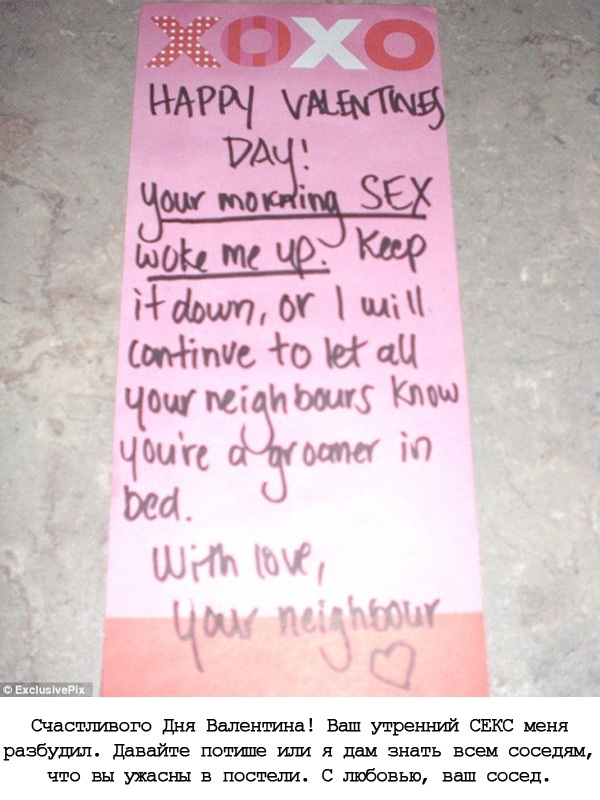 XOXO
HAPPY VALENTINES
DAY!
your morning SEX
woke me up. Keep
it down, or I will
continue to let all
your neighbours know
you're a groaner in
bed.
With love,
your neighbour
© ExclusivePix
Счастливого Дня Валентина! Ваш утренний СЕКС меня
разбудил. Давайте потише или я дам знать всем соседям,
что вы ужасны в постели. С любовью, ваш сосед.